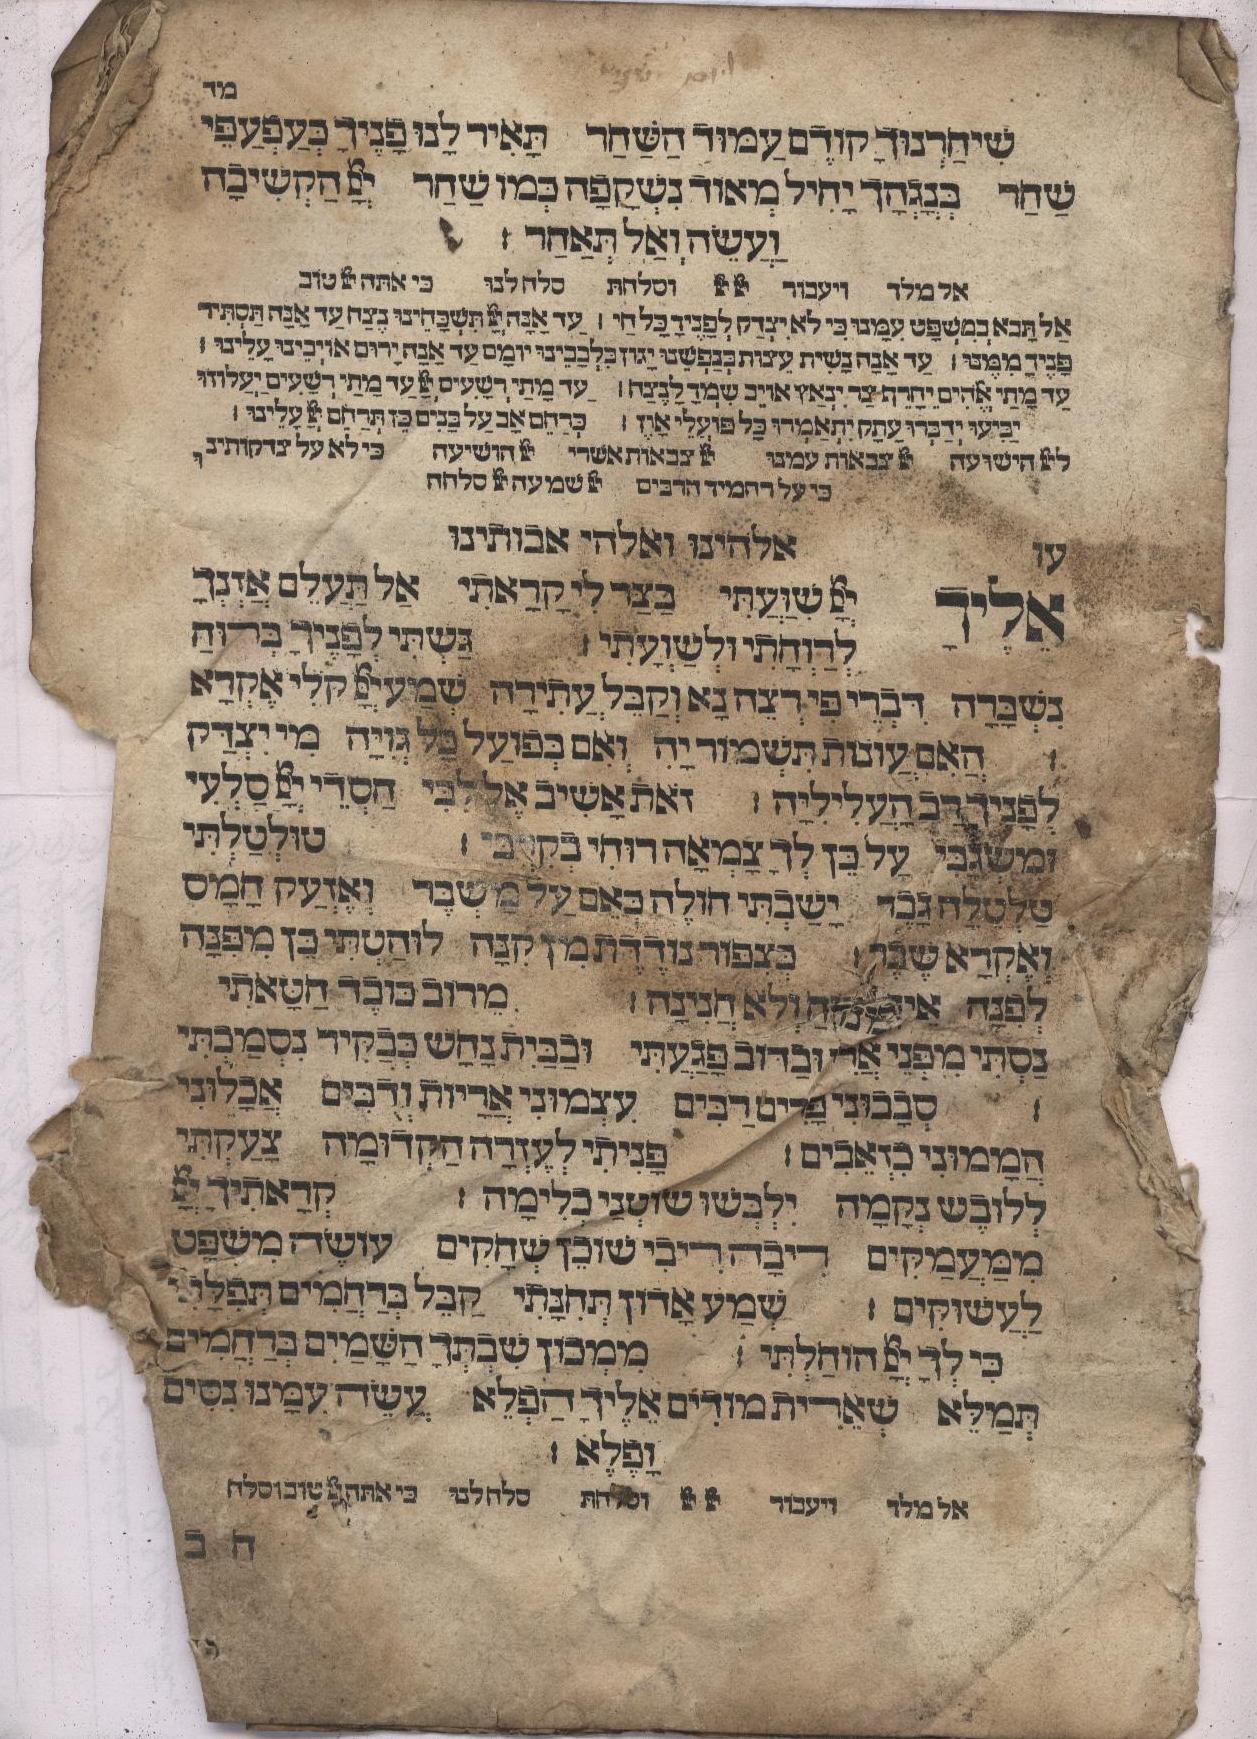 מד
שִׁיחַרְנוּךָ קוֹדֶם עַמּוּד הַשַּׁחַר תָּאִיר לָנוּ פָנֶיךָ כְּעַפְעַפֵּי
שַׁחַר יָחִיל מְאוֹד נִשְׁקָפָה כְּמוֹ שַׁחַר יְיָ הַקְשִׁיבָה
וַעֲשֵׂה וְאַל תְּאַחַר :
אל מלך ויעבור יי יי וסלחת סלח לנו כי אתה יי טוב
אַל תָּבֹא בְמִשְׁפָּט עִמָּנוּ כִּי לֹא יִצְדַּק לְפָנֶיךָ כָּל חַי : עַד אָנָה יְיָ תִּשְׁכָּחֵינוּ נֶצַח עַד אָנָה תַּסְתִּיר
פָּנֶיךָ מִמֶּנּוּ : עַד אָנָה נָשִׁית עֵצוֹת בְּנַפְשֵׁנוּ יָגוֹן בִּלְבָבֵינוּ יוֹמָם עַד אָנָה יָרוּם אוֹיְבֵינוּ עָלֵינוּ :
עַד מָתַי אֱלֹהִים יְחָרֶף צָר יְנָאֵץ אוֹיֵב שִׁמְךָ לָנֶצַח : עַד מָתַי רְשָׁעִים יְיָ עַד מָתַי רְשָׁעִים יַעֲלוֹזוּ
יַבִּיעוּ יְדַבְּרוּ עָתָק יִתְאַמְּרוּ כָּל פּוֹעֲלֵי אָוֶן : כְּרַחֵם אָב עַל בָּנִים כֵּן תְּרַחֵם יְיָ עָלֵינוּ :
ליי הישועה יי צבאות עמנו יי צבאות אשרי יי הושיעה כי לא על צדקותינו
כי על רחמיך הרבים יי שמעה יי סלחה
עו אלהינו ואלהי אבותינו
אֵלֶיךָ יְיָ שִׁוַּעְתִּי בַּצַּר לִי קָרָאתִי אַל תַּעְלֵם אָזְנְךָ
לְרַוְחָתִי וּלְשַׁוְעָתִי : גַּשְׁתִּי לְפָנֶיךָ בְּרוּחַ
נִשְׁבָּרָה דִּבְרֵי פִי רְצֵה נָא וְקַבֵּל עֲתִירָה שְׁמַע יְיָ קוֹלִי אֶקְרָא
: הַאִם עֲוֹנוֹת תִּשְׁמוֹר יָהּ וְאִם כְּפוֹעַל כָּל גְּוִיָּה מִי יִצְדַּק
לְפָנֶיךָ רַב הָעֲלִילִיָּה : זֹאת אָשִׁיב אֶל לִבִּי חַסְדֵי יְיָ סַלְעִי
וּמִשְׂגַּבִּי עַל כֵּן לְךָ צָמְאָה רוּחִי בְּקִרְבִּי : טוּלְטַלְתִּי
טַלְטֵלָה גָּבֶר יָשַׁבְתִּי חוֹלֶה כְּאֵם עַל מַשְׁבֵּר וְאֶזְעַק חָמָס
וְאֶקְרָא שֶׁבֶר : כְּצִפּוֹר נוֹדֶדֶת מִן קִנָּהּ לוּחַטְתִּי כֵּן מִפִּנָּה
לְפִנָּה וְלֹא חֲנִינָה : מֵרוֹב כּוֹבֶד חַטָּאתִי
נַסְתִּי מִפְּנֵי אֲרִי וּבַדּוֹב פָּגַעְתִּי וּבַבַּיִת נָחָשׁ כְּבַקִּיר נִסְמַכְתִּי
: סְבָבוּנִי פָרִיט רַבִּים עִצְמוּנִי אֲרָיוֹת וְדֻבִּים אֲכָלוּנִי
הֲמָמוּנִי כִּזְאֵבִים : פָּנִיתִי לְעֶזְרָה הַקְּדוּמָה צָעַקְתִּי
לְלוֹבֵשׁ נְקָמָה יִלְבְּשׁוּ שׂוֹטְנַי כְּלִימָּה : קְרָאתִיךָ יְיָ
מִמַּעֲמַקִּים רִיבָה רִיבִי שׁוֹכֵן שְׁחָקִים עוֹשֶׂה מִשְׁפָּט
לַעֲשׁוּקִים : שְׁמַע אָדוֹן תְּחִנָּתִי קַבֵּל בְּרַחֲמִים תְּפִלָּתִי
כִּי לְךָ יְיָ הוֹחַלְתִּי : מִמְּכוֹן שִׁבְתְּךָ הַשָּׁמַיִם בְּרַחֲמִים
תְּמַלֵּא שְׁאֵרִית מוֹדִים אֵלֶיךָ הַפְלֵא עֲשֵׂה עִמָּנוּ נִסִּים
וָפֶלֶא :
אל מלך ויעבור יי יי וסלחת סלח לנו כי אתה יי טוב וסלח
ח ב